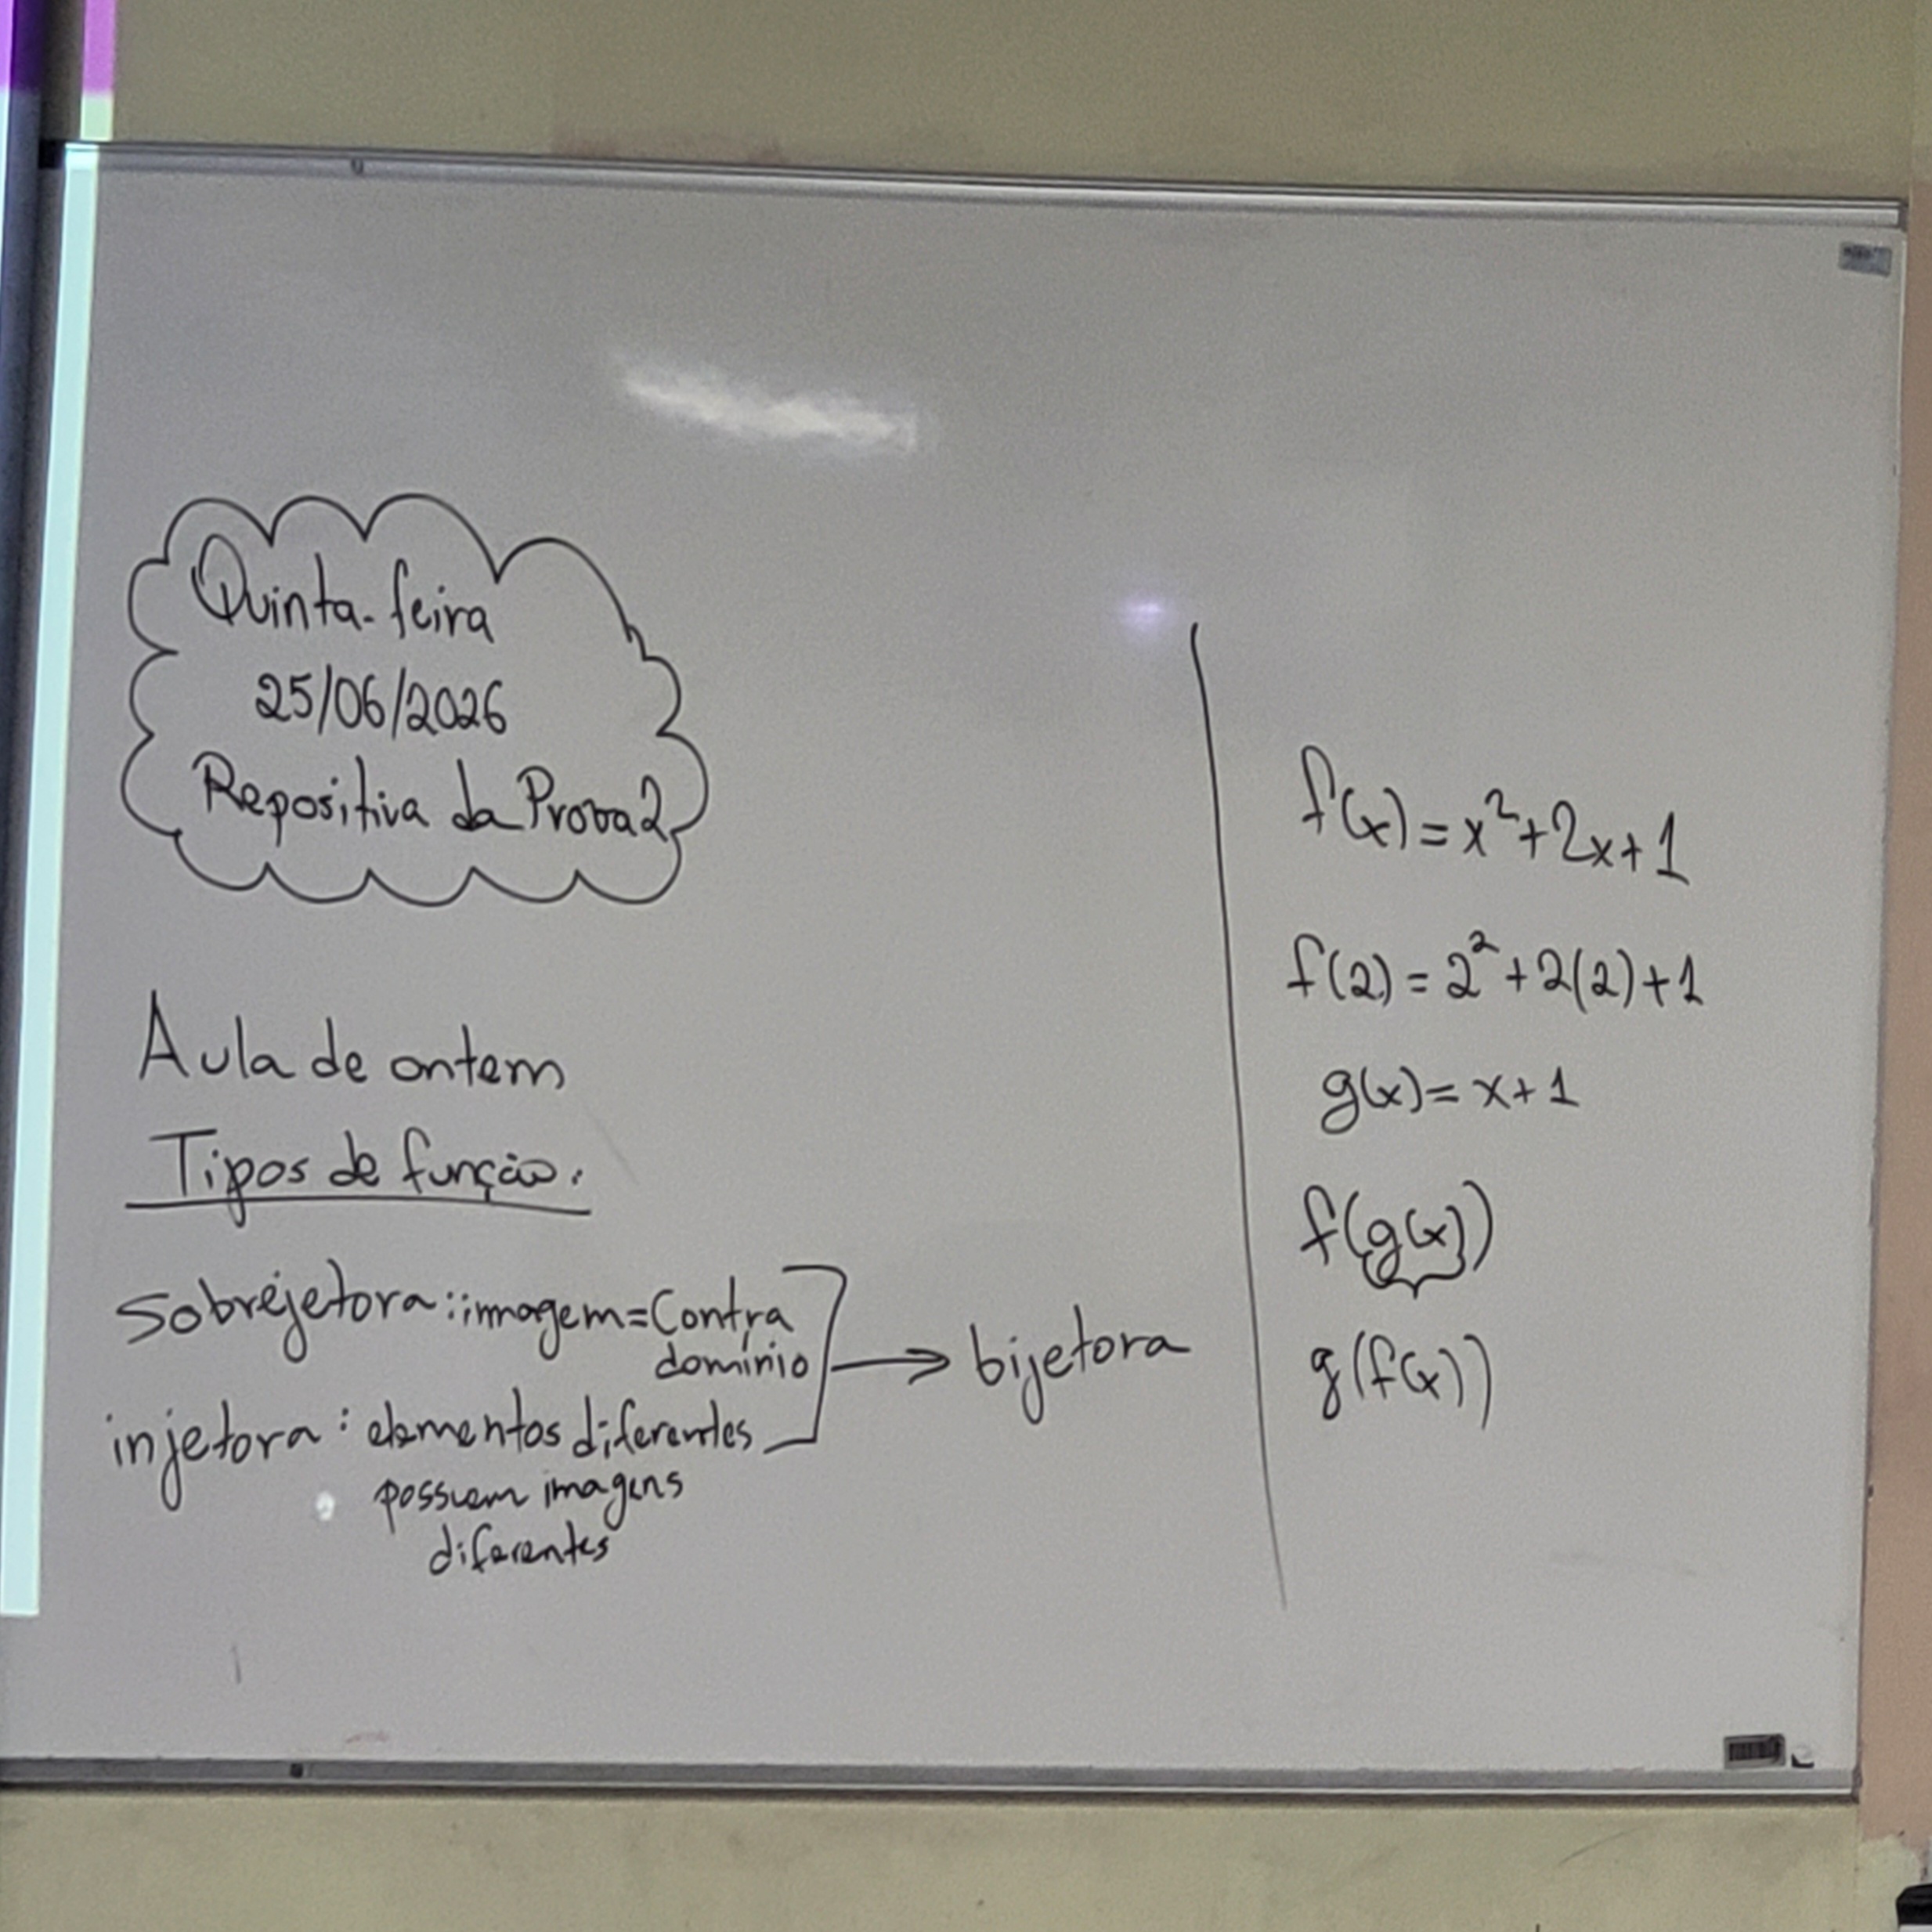 Quinta-feira
25/06/2026
Repositiva da Prova 2
Aula de ontem
Tipos de função:
Sobrejetora: imagem = Contra
domínio
injetora: elementos diferentes
possuem imagens
diferentes
bijetora
f(x) = x² + 2x + 1
f(2) = 2² + 2(2) + 1
g(x) = x + 1
f(g(x))
g(f(x))